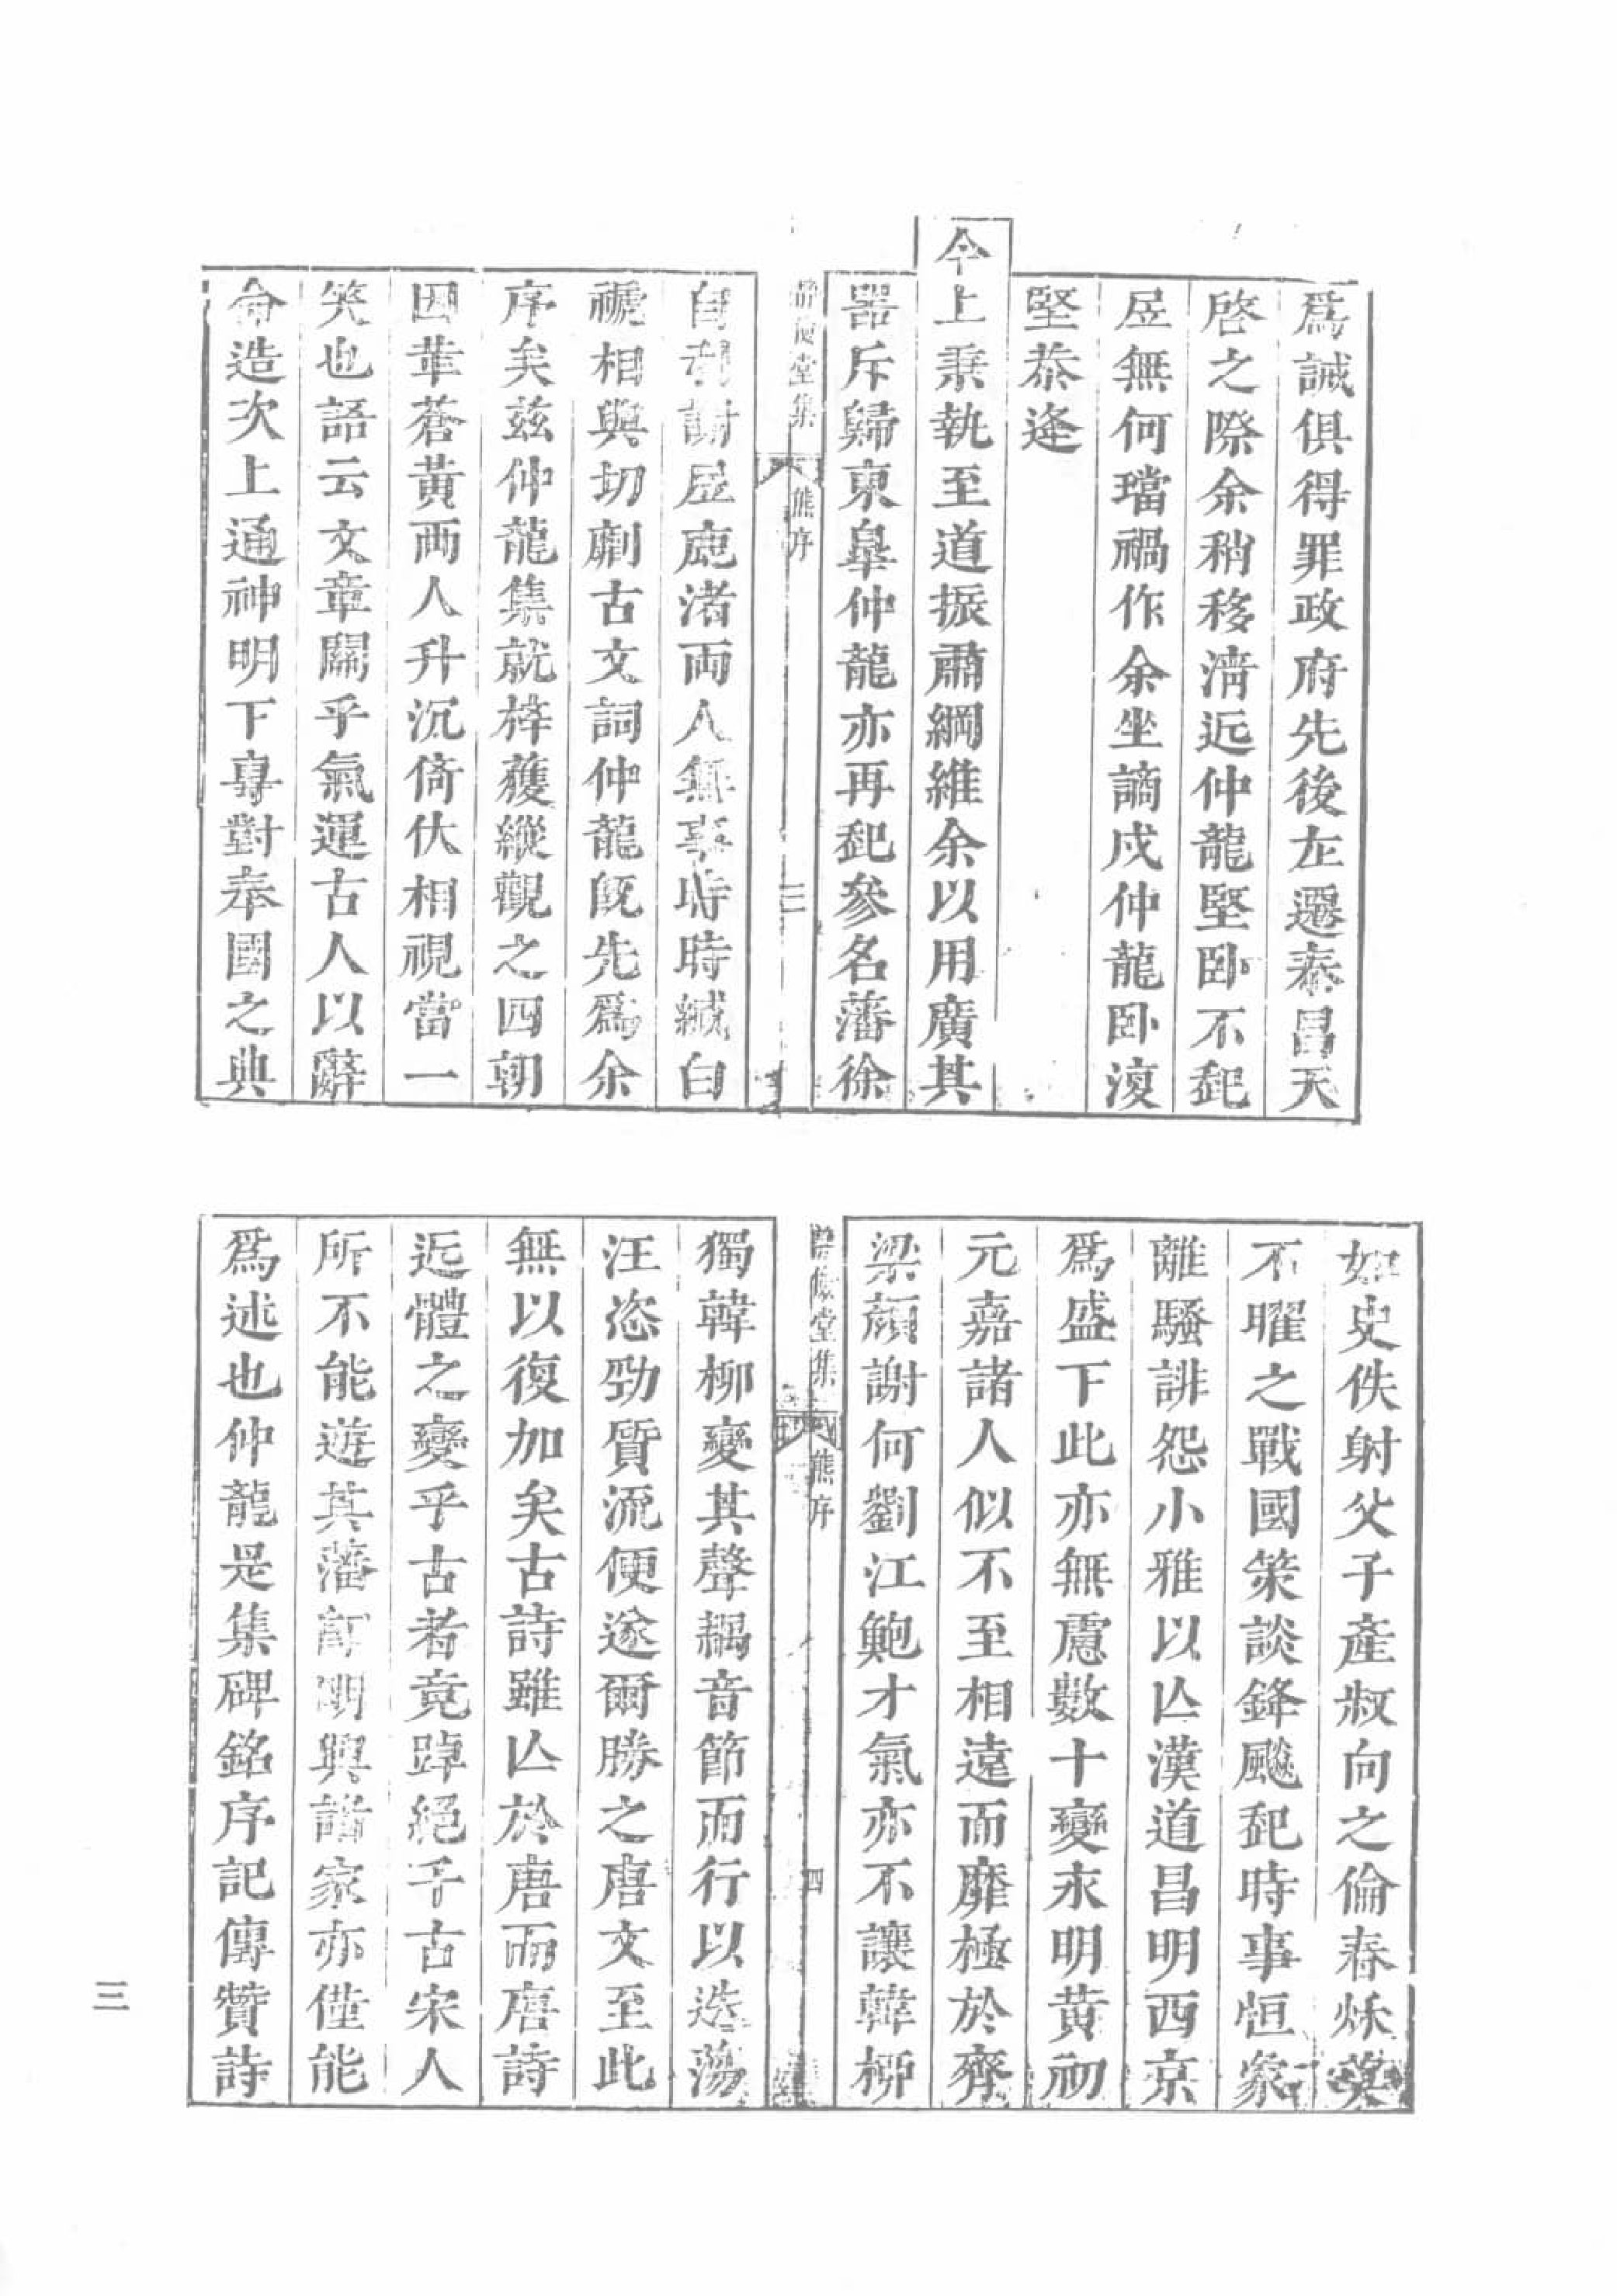 爲誡俱得罪政府先後左遷泰昌天
啓之際余稍移淸近仲龍堅卧不起
㞐無何璫禍作余坐謫戍仲龍卧滚
堅恭逢
今上秉執至道振肅綱維余以用廣其
器斥歸東皐仲龍亦再起參名藩徐
熊序
三
謝㞐鹿渚兩人無事時時緘白
褫相與切劘古文詞仲龍旣先爲余
序矣兹仲龍集就梓獲縱觀之四朝
因革蒼黃兩人升沉倚伏相視當一
笑也語云文章關乎氣運古人以辭
命造次上通神明下專對奉國之典
如史佚射父子產叔向之倫春秌莫
不曜之戰國策談鋒颷起時事恒家
離騷誹怨小雅以亾漢道昌明西京
爲盛下此亦無慮數十變永明黃初
元嘉諸人似不至相遠而靡極於齊
梁顏謝何劉江鮑才氣亦不讓韓柳
堂集
熊序
四
獨韓柳變其聲耦音節而行以迭蕩
汪恣勁質流便遂爾勝之唐文至此
無以復加矣古詩雖亾於唐而唐詩
近體之變乎古者竟踔絕千古宋人
所不能遊其藩明興諸家亦僅能
爲述也仲龍是集碑銘序記傳贊詩
三